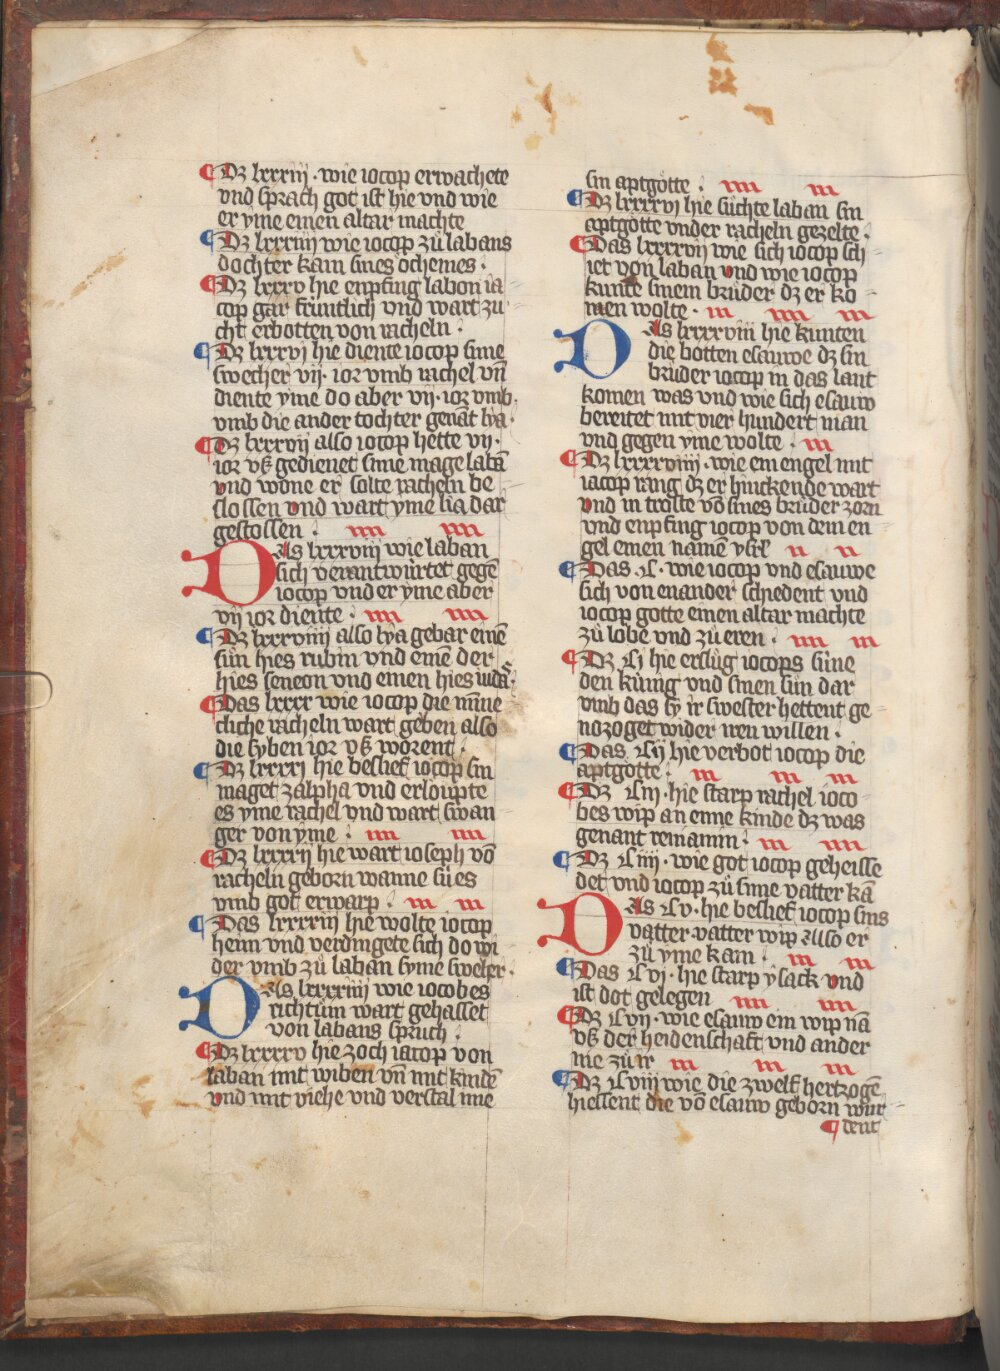 ¶ Dz lxxxiij · wie iocop erwachete
vnd sprach got ist hie vnd wie
er yme einen altar machte
¶ Dz lxxxiiij wie iocop zů labans
dochter kam sines ochemes ·
¶ Dz lxxxv hie enpfing labon ia
cop gar früntlich vnd wart zu
cht erbotten von racheln :
¶ Dz lxxxvj hie diente iocop sime
swecher vij · ior vmb rachel vn̄
diente yme do aber vij · ior vmb
vmb die ander tochter genāt lya ·
¶ Dz lxxxvij also iocop hette vij ·
ior vß gedienet sime mage labā
vnd wone er solte racheln be
slossen vnd wart yme lia dar
gestossen :
DAs lxxxviij wie laban
sich verantwürtet gegē
iocop vnd er yme aber
vij ior diente ·
¶ Dz lxxxviiij also lya gebar einē
sün hies rubin vnd einē der
hies semeon vnd einen hies iudas
¶ Das lxxxx wie iocop die mīne
cliche racheln wart geben also
die syben ior vß worent :
¶ Dz lxxxxj hie beslief iocop sin
maget zalpha vnd erloupte
es yme rachel vnd wart swan
ger von yme :
¶ Dz lxxxxij hie wart ioseph vō
racheln geborn wanne sü es
vmb got erwarp ·
¶ Das lxxxxiij hie wolte iocop
heim vnd verdingete sich do wi
der vmb zů laban syme sweher ·
DAs lxxxxiiij wie iocobes
richtům wart gehasset
von labans spruch :
¶ Dz lxxxxv hie zoch iacop von
laban mit wiben vn̄ mit kindē
vnd mit viehe vnd verstal ime
sin aptgötte :
¶ Dz lxxxxvj hie süchte laban sin
aptgötte vnder racheln gezelte :
¶ Das lxxxxvij wie sich iocop sch
iet von laban vnd wie iocop
kunte sinem brůder dz er ko
men wolte ·
DAs lxxxxviij hie kunten
die botten esauwe dz sin
brůder iocop in das lant
komen was vnd wie sich esauw
bereitet mit vier hundert man
vnd gegen yme wolte ·
¶ Dz lxxxxviiij · wie ein engel mit
iacop rang dz er hinckende wart
vnd in troste vō sines brůder zorn
vnd enpfing iocop von dem en
gel einen namē ysrl
¶ Das · C · wie iocop vnd esauwe
sich von enander schiedent vnd
iocop gotte einen altar machte
zů lobe vnd zů eren ·
¶ Dz Cj hie erslůg iocops süne
den künig vnd sinen sün dar
vmb das sy ir swester hettent ge
nozoget wider iren willen ·
¶ Das Cij hie verbot iocop die
aptgötte ·
¶ Dz Ciij · hie starp rachel ioco
bes wip an eime kinde dz was
genant beniamin ·
¶ Dz Ciiij · wie got iocop geheisse
det vnd iocop zů sime vatter kā
DAs Cv · hie beslief iocop sins
vatter vatter wip also er
zů yme kam ·
¶ Das Cvj · hie starp ysack vnd
ist dot gelegen
¶ Dz Cvij · wie esauw ein wip nā
vß der heidenschaft vnd ander
nie zů ir
¶ Dz Cviij wie die zwelf hertzogē
hiessent die vō esauw geborn wur
¶ dent